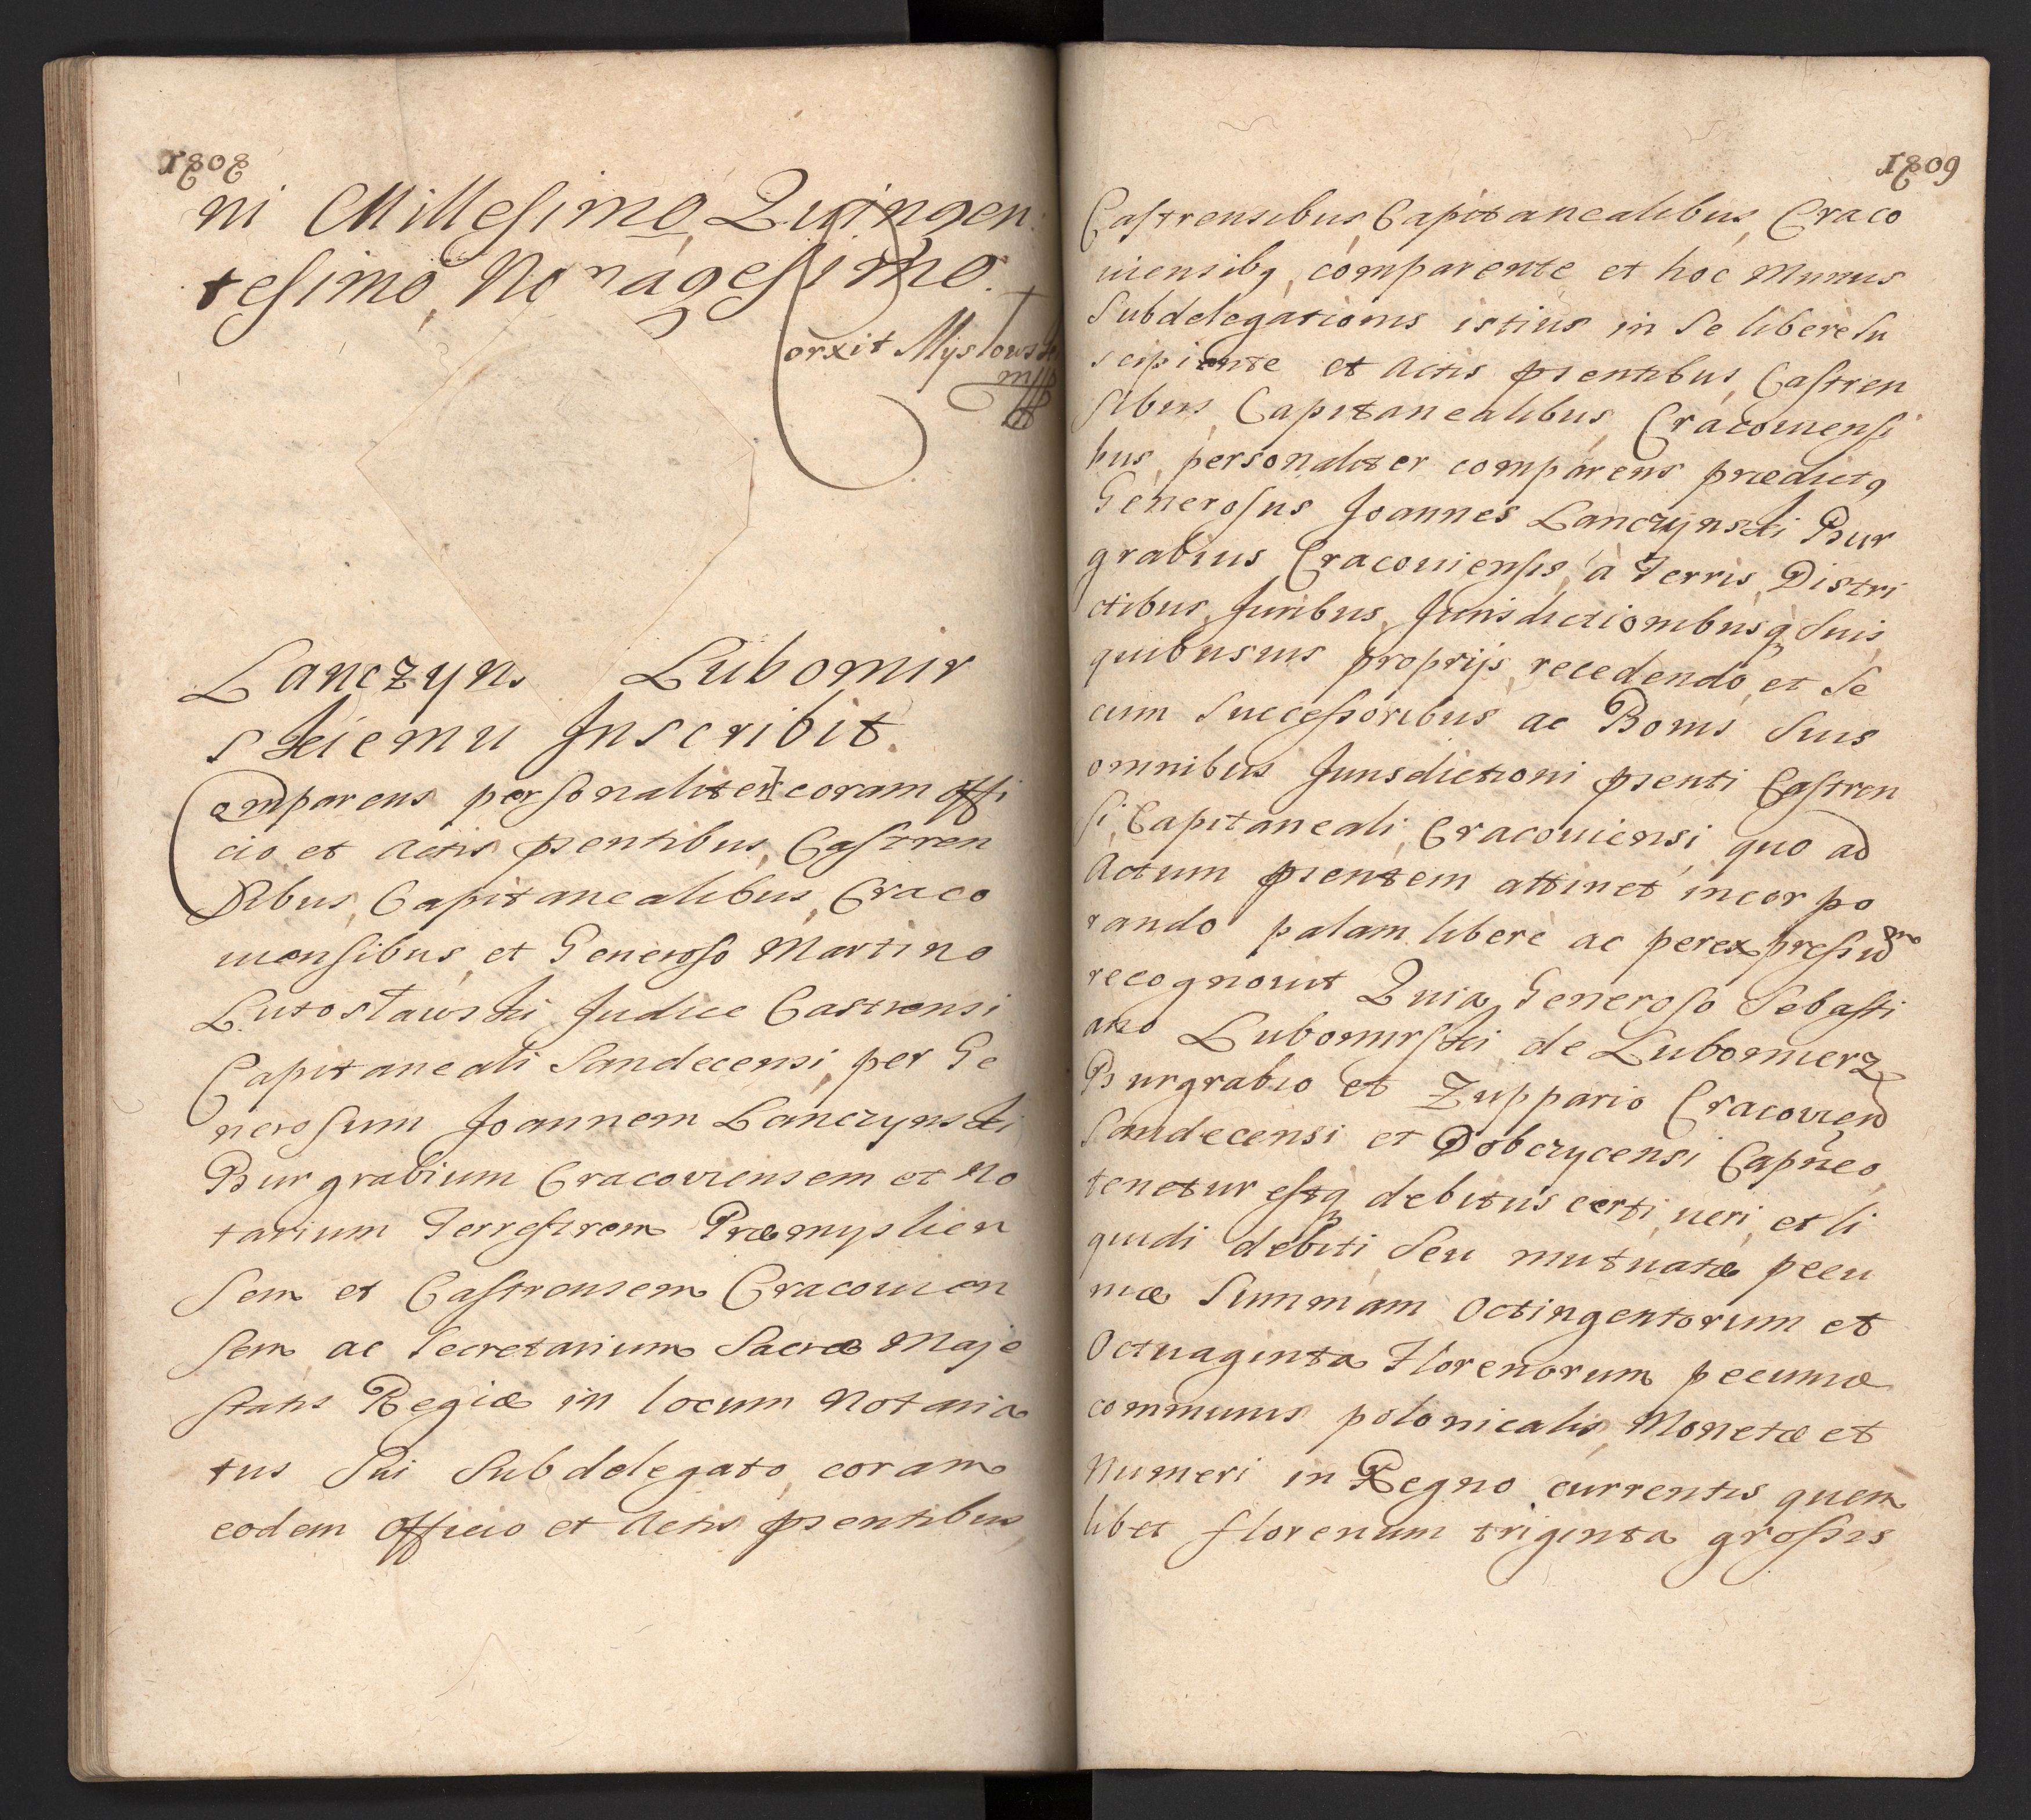 1808
ni Millesimo, Quingen
tesimo, Nonagesimo.
Corxit Mysłows
mpp
Lanczyns Lubomir
skiemu Inscribit.
Comparens personaliter coram offi
cio et Actis pñentibus, Castren
sibus, Capitanealibus, Craco
uiensibus, et Generoso Martino
Lutosławski Judice Castrensi
Capitaneali Sandecensi, per Ge
nerosum Joannem Lanczynski
Burgrabium Cracoviensem et No
tarium Terrestrem Præmyslien
sem et Castrensem Cracouien
sem ac Secretarium Sacræ Maje
statis Regiæ in locum Notaria
tus Sui Subdelegato, coram
eodem Officio et Actis pñentibus,
1809
Castrensibus, Capitanealibus, Craco
uiensibq, comparente et hoc Munus
Subdelegationis istius in Se liberè Su
scipiente et Actis pñentibus, Castren
sibus, Capitanealibus, Cracouiensi
bus, personaliter comparens prædictq
Generosus Joannes Lanczynski Bur
grabius Cracouiensis, à Terris, Distri
ctibus, Juribus, Jurisdictionibusq Suis,
quibusuis proprijs, recedendo, et Se
cum Successoribus ac Bonis Suis
omnibus Jurisdictioni pñenti Castren
si, Capitaneali, Cracouiensi, quo ad
Actum pñentem attinet incorpo
rando palam liberè ac per expressum
recognouit Quia, Generoso Sebasti
ano Lubomirski de Lubomierz
Burgrabio et Zuppario Cracovien
Sandecensi et Dobczycensi Capñeo,
tenetur estq debitus certi, ueri, et li
quidi debiti Seu mutuatæ pecu
niæ Summam Octingentorum et
Octuaginta Florenorum pecuniæ
communis polonicalis, Monetæ et
Numeri in Regno currentis quem
libet florenum triginta grossis